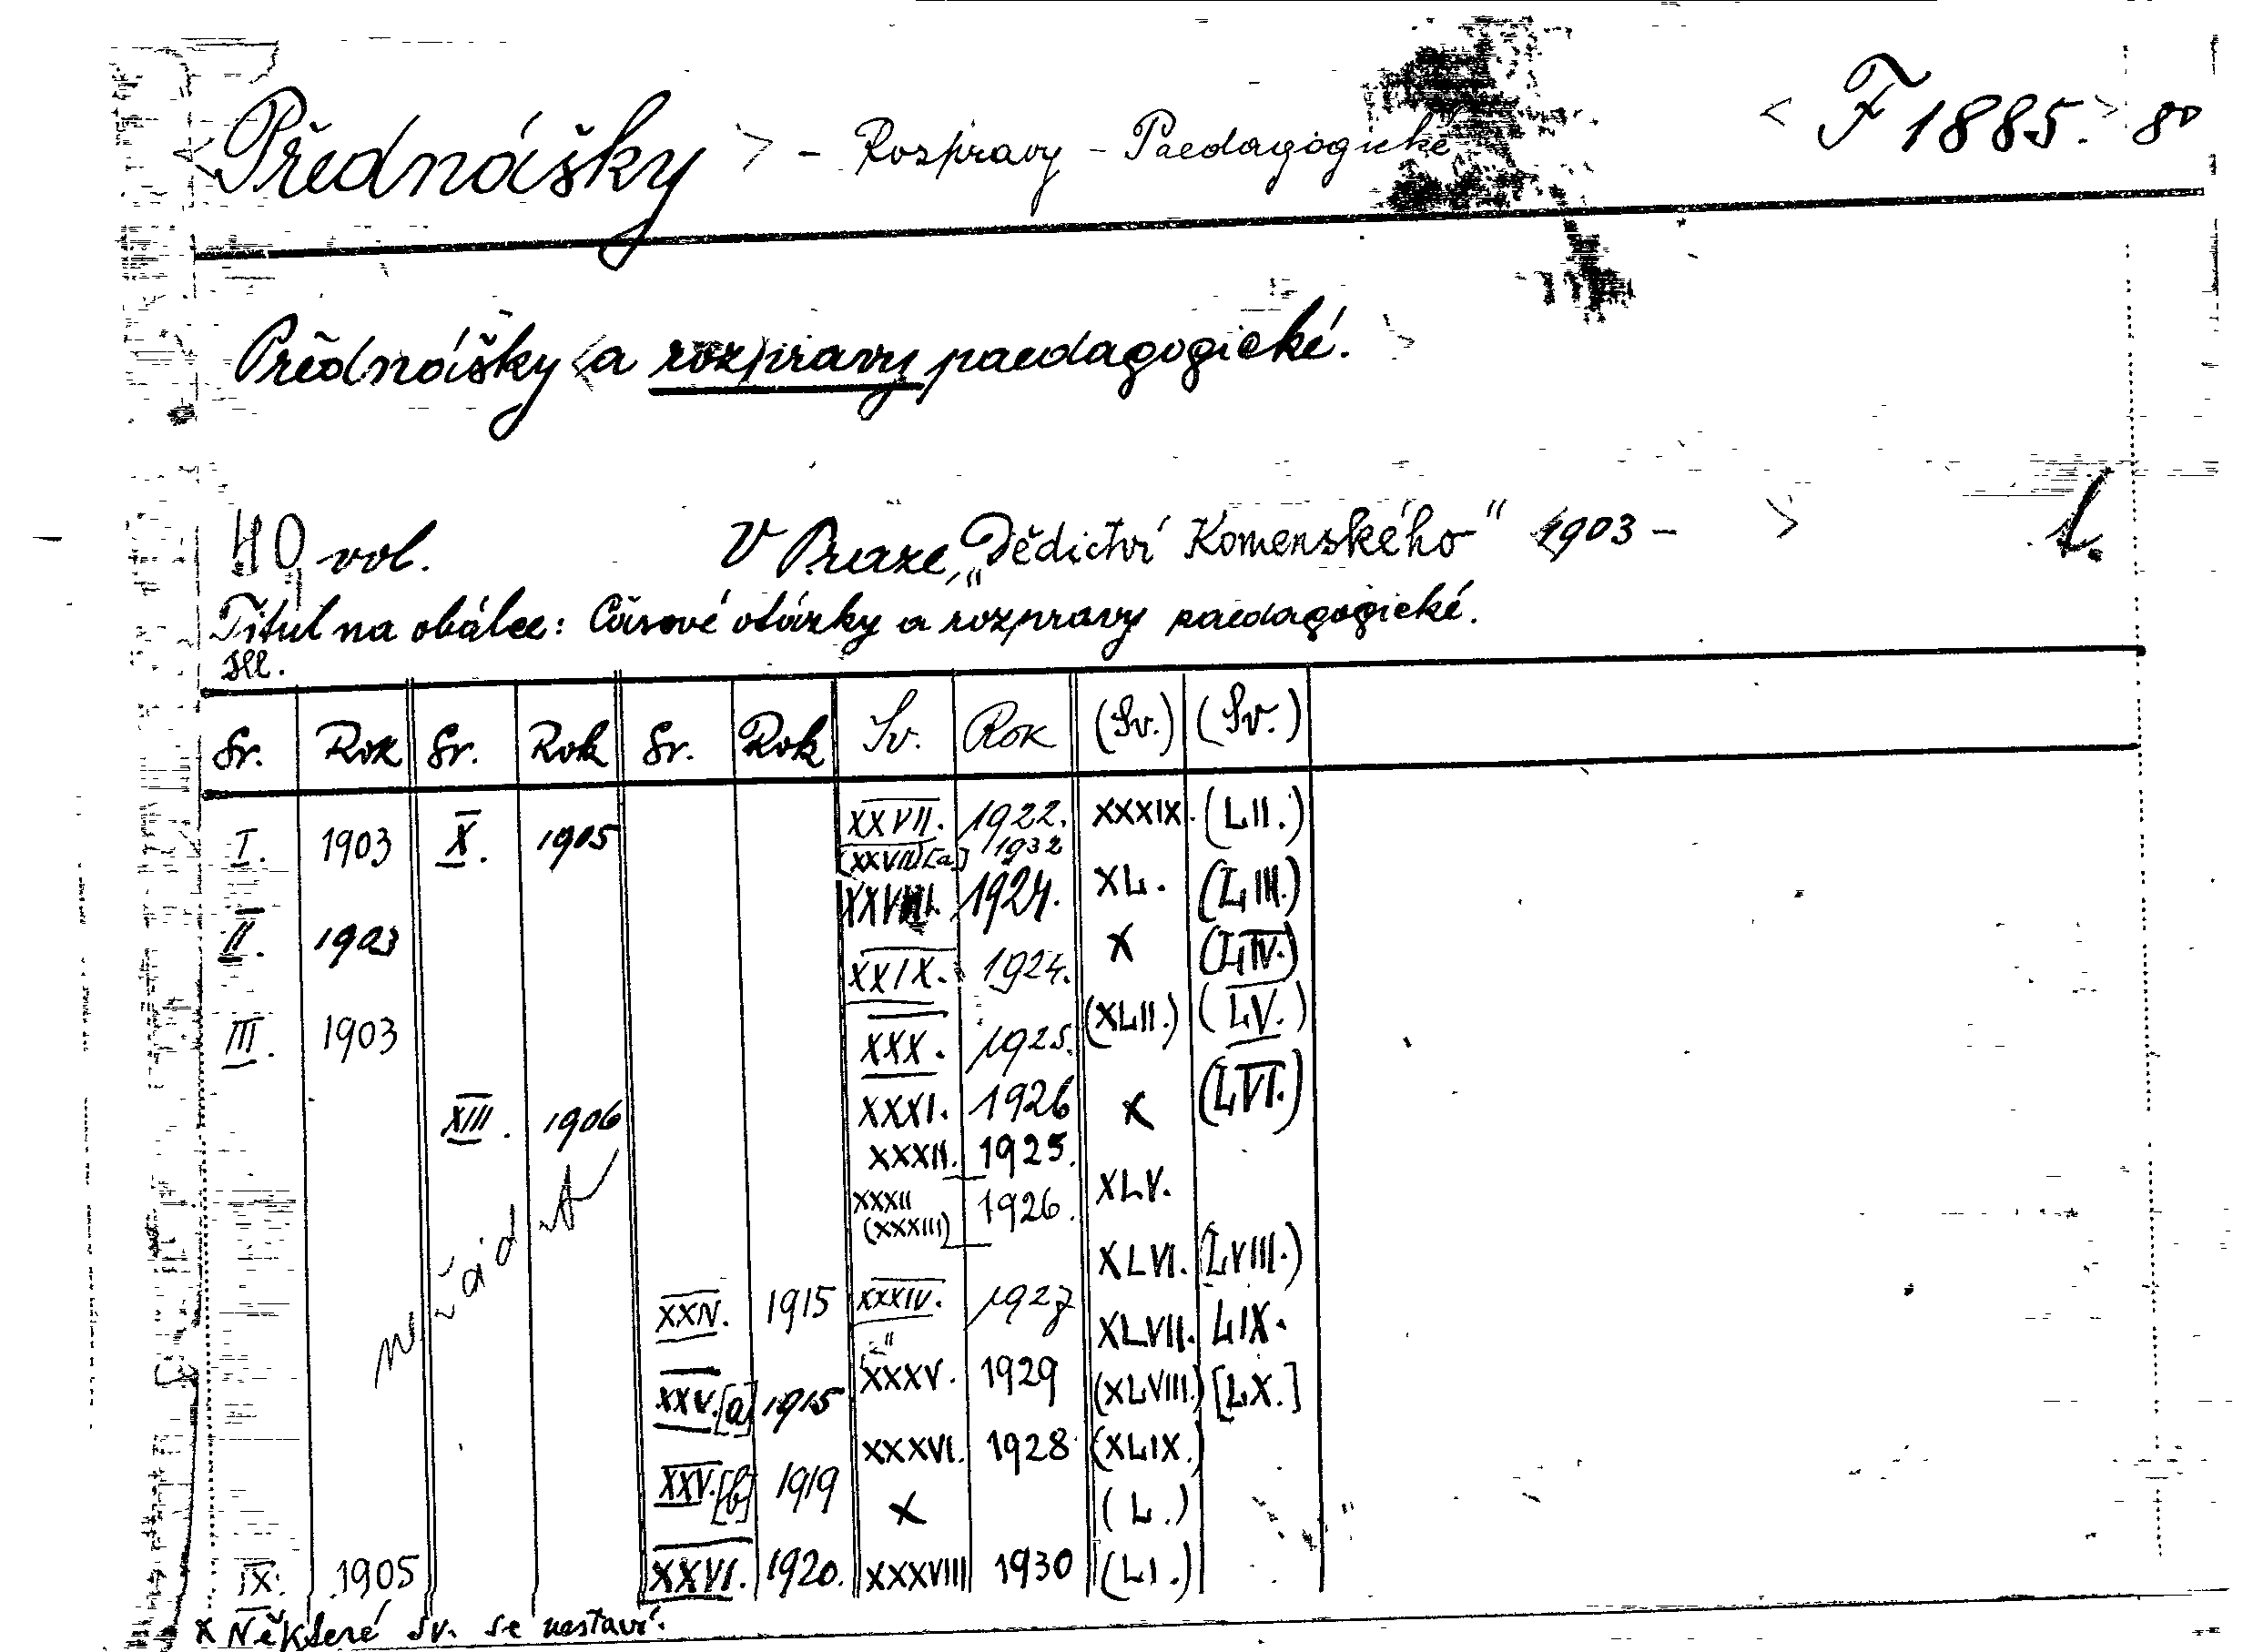 <Přednášky> - Rozpravy - Paedagogické <F 1885.> 8°
Přednášky <a rozpravy paedagogické.>
40 vol. V Praze, „Dědictví Komenského“ <1903 - > 1.
Titul na obálce: Časové otázky a rozpravy paedagogické.
Ill.
Sv. Rok Sv. Rok Sv. Rok Sv. Rok (Sv.) (Sv.)
I. 1903 X. 1905 XXVII. 1922. XXXIX. (LII.)
(XXVII)[a] 1932
XXVIII. 1924. XL. (LIII.)
II. 1903 XXIX. 1924. X (LIV.)
III. 1903 XXX. 1925. (XLII.) (LV.)
XIII. 1906 XXXI. 1926 X (LVI.)
XXXII. 1925.
XXXII (XXXIII) 1926. XLV.
XLVI. (LVIII.)
XXIV. 1915 XXXIV. 1927 XLVII. LIX.
XXV.[a] 1915 XXXV. 1929 (XLVIII.) [LX.]
XXV.[b] 1919 XXXVI. 1928 (XLIX.)
X (L.)
IX. 1905 XXVI. 1920. XXXVIII 1930 (LI.)
x Některé sv. se nestaví.